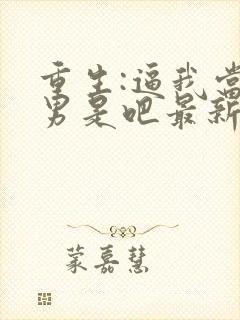 重生:逼我当
男是吧最新
蒙嘉慧